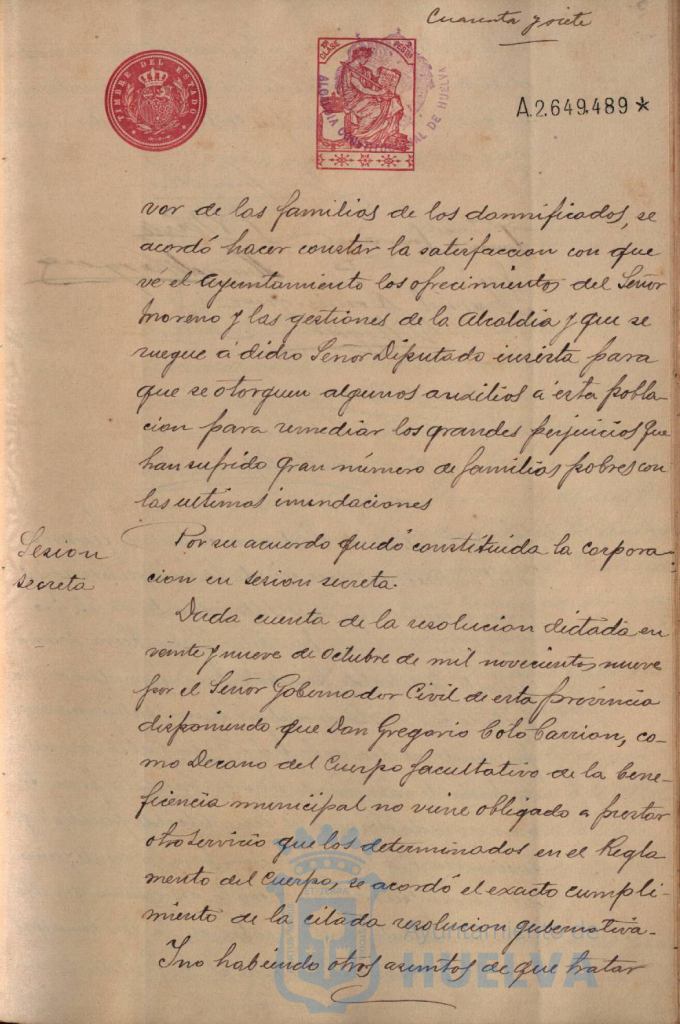 Cuarenta y siete
TIMBRE DEL ESTADO
CLASE
ALCALDIA CONSTITUCIONAL DE HUELVA
A.2.649.489 *
vor de las familias de los damnificados, se
acordó hacer constar la satisfaccion con que
vé el Ayuntamiento los ofrecimientos del Señor
Moreno y las gestiones de la Alcaldia y que se
ruegue á dicho Señor Diputado insista para
que se otorguen algunos auxilios á esta pobla-
cion para remediar los grandes perjuicios que
han sufrido gran número de familias pobres con
las ultimas inundaciones
Sesion
secreta
Por su acuerdo quedó constituida la corpora-
cion en sesion secreta.
Dada cuenta de la resolucion dictada en
veinte y nueve de Octubre de mil novecientos nueve
por el Señor Gobernador Civil de esta provincia
disponiendo que Don Gregorio Coto Carrion, co-
mo Decano del Cuerpo facultativo de la bene-
ficencia municipal no viene obligado a prestar
otro servicio que los determinados en el Regla
mento del Cuerpo, se acordó el exacto cumpli-
miento de la citada resolucion gubernativa.
Y no habiendo otros asuntos de que tratar
Ayuntamiento de
HUELVA